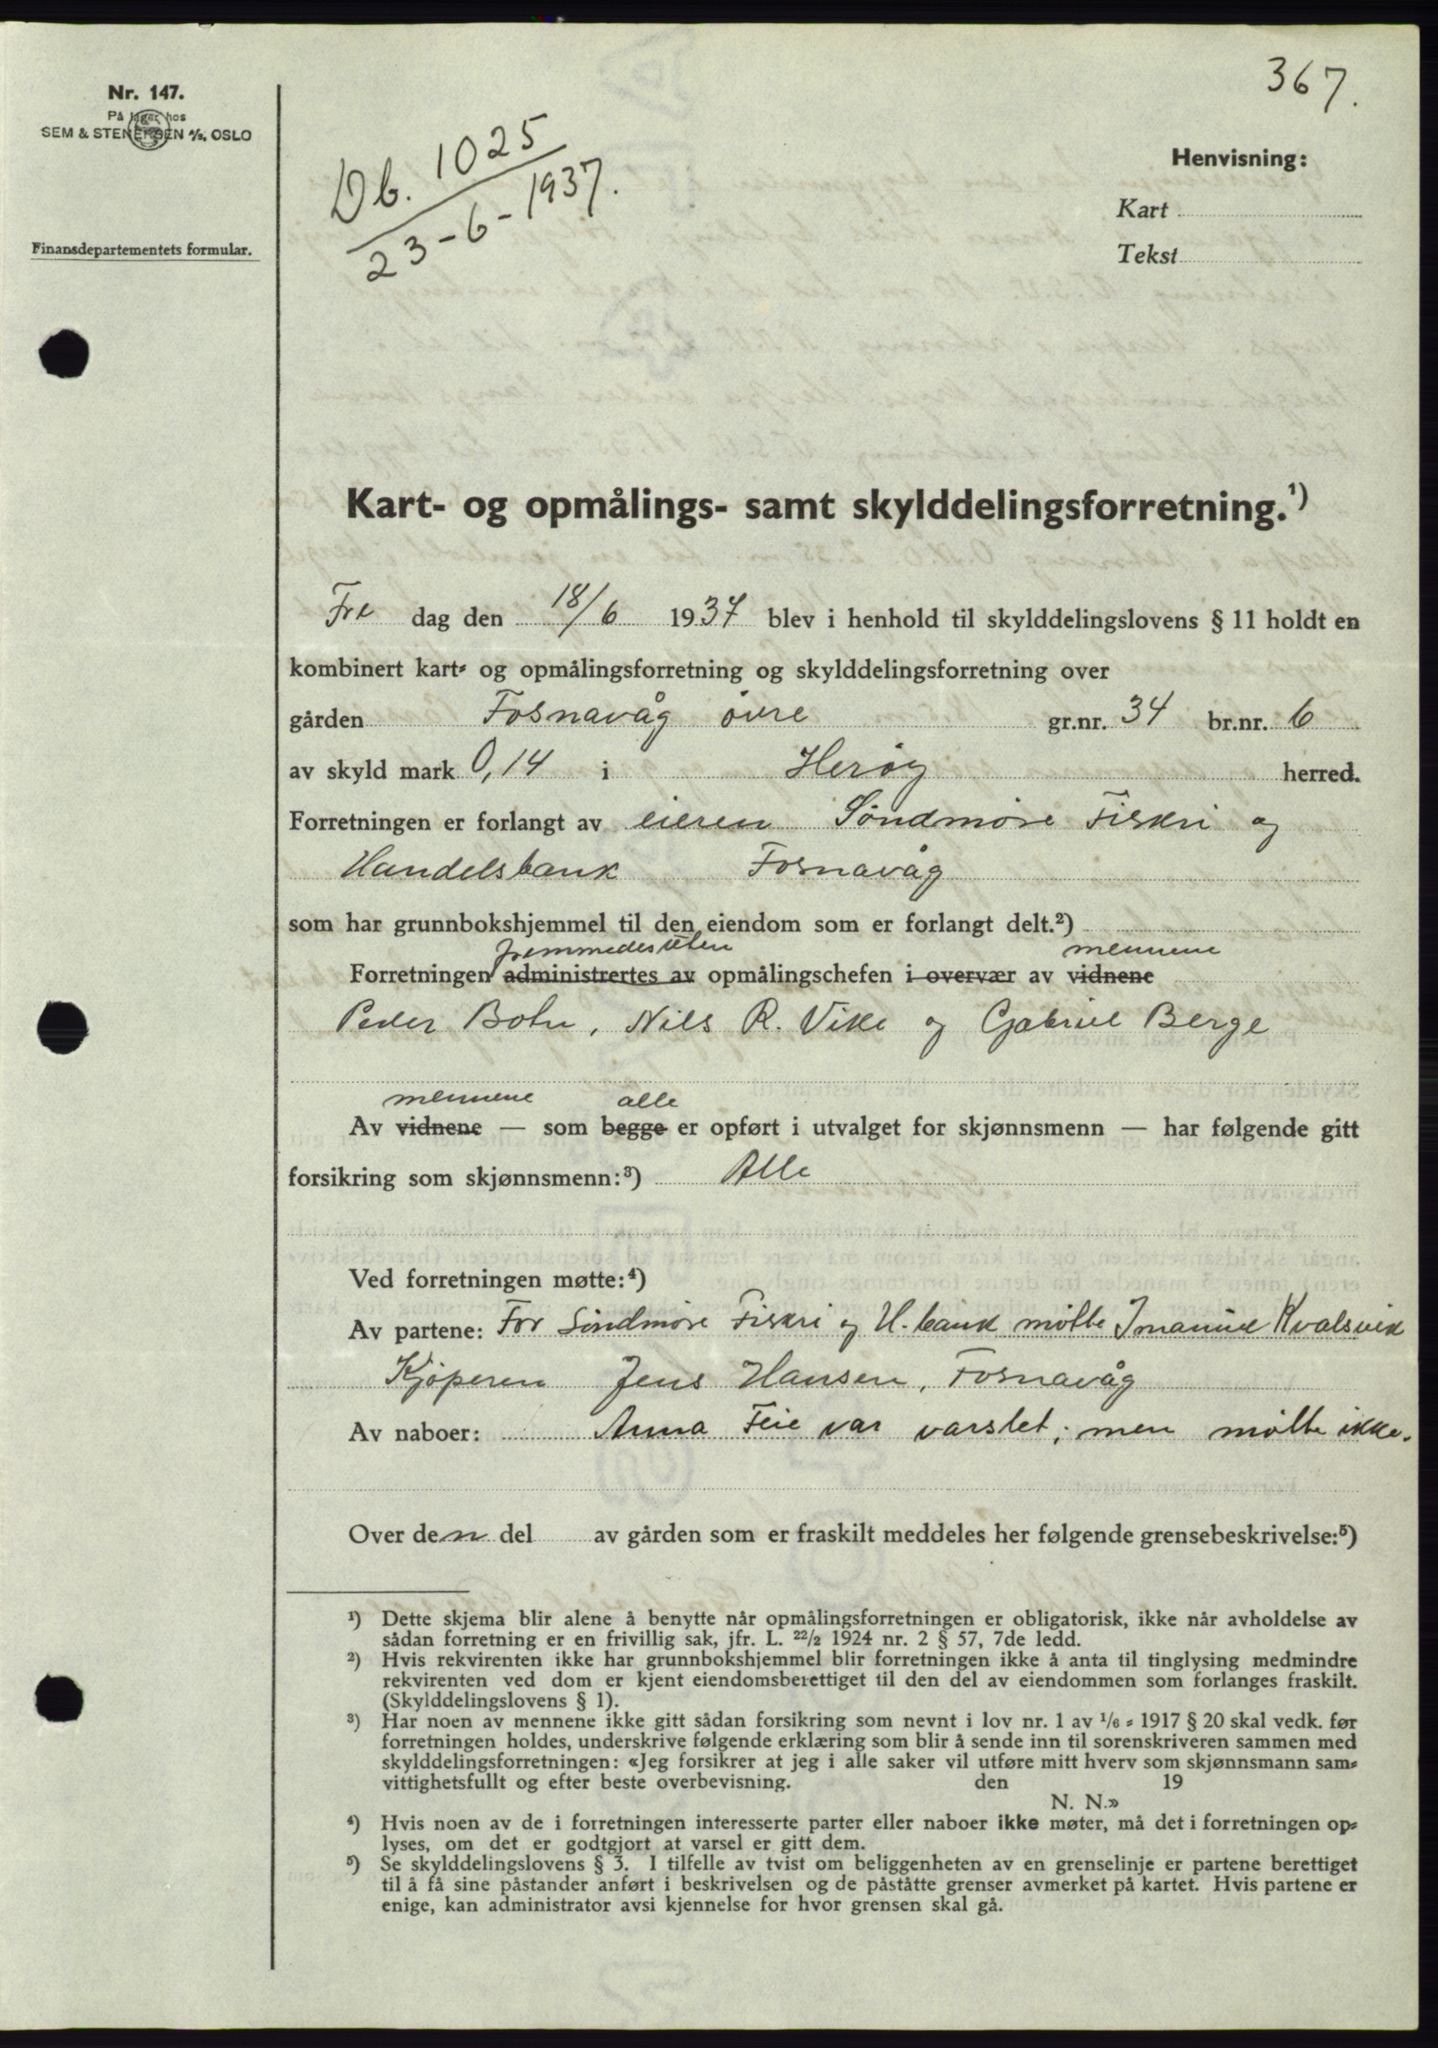 367.
Nr. 147.
På lager hos
SEM & STENERSEN A/S, OSLO
Db. 1025
23-6-1937.
Henvisning:
Kart
Tekst
Finansdepartementets formular.
Kart- og opmålings- samt skylddelingsforretning.¹)
Fre dag den 18/6 1937 blev i henhold til skylddelingslovens § 11 holdt en
kombinert kart- og opmålingsforretning og skylddelingsforretning over
gården Fosnavåg øvre gr.nr. 34 br.nr. 6
av skyld mark 0,14 i Herøy herred.
Forretningen er forlangt av eieren Søndmøre Fiskri og
Handelsbank Fosnavåg
som har grunnbokshjemmel til den eiendom som er forlangt delt.²)
fremmedes uten mennene
Forretningen administrertes av opmålingschefen i overvær av vidnene
Peder Bohn, Nils R. Vike og Gabriel Berge
mennene alle
Av vidnene — som begge er opført i utvalget for skjønnsmenn — har følgende gitt
forsikring som skjønnsmenn:³) Alle
Ved forretningen møtte:⁴)
Av partene: For Søndmøre Fiskri og H.bank møtte Imanuel Kvalsvik
Kjøperen Jens Hansen, Fosnavåg
Av naboer: Anna Feie var varslet; men møtte ikke.
Over den del av gården som er fraskilt meddeles her følgende grensebeskrivelse:⁵)
¹) Dette skjema blir alene å benytte når opmålingsforretningen er obligatorisk, ikke når avholdelse av
sådan forretning er en frivillig sak, jfr. L. 22/2 1924 nr. 2 § 57, 7de ledd.
²) Hvis rekvirenten ikke har grunnbokshjemmel blir forretningen ikke å anta til tinglysing medmindre
rekvirenten ved dom er kjent eiendomsberettiget til den del av eiendommen som forlanges fraskilt.
(Skylddelingslovens § 1).
³) Har noen av mennene ikke gitt sådan forsikring som nevnt i lov nr. 1 av 1/6 - 1917 § 20 skal vedk. før
forretningen holdes, underskrive følgende erklæring som blir å sende inn til sorenskriveren sammen med
skylddelingsforretningen: «Jeg forsikrer at jeg i alle saker vil utføre mitt hverv som skjønnsmann sam-
vittighetsfullt og efter beste overbevisning. den 19
N. N.»
⁴) Hvis noen av de i forretningen interesserte parter eller naboer ikke møter, må det i forretningen op-
lyses, om det er godtgjort at varsel er gitt dem.
⁵) Se skylddelingslovens § 3. I tilfelle av tvist om beliggenheten av en grenselinje er partene berettiget
til å få sine påstander anført i beskrivelsen og de påståtte grenser avmerket på kartet. Hvis partene er
enige, kan administrator avsi kjennelse for hvor grensen skal gå.